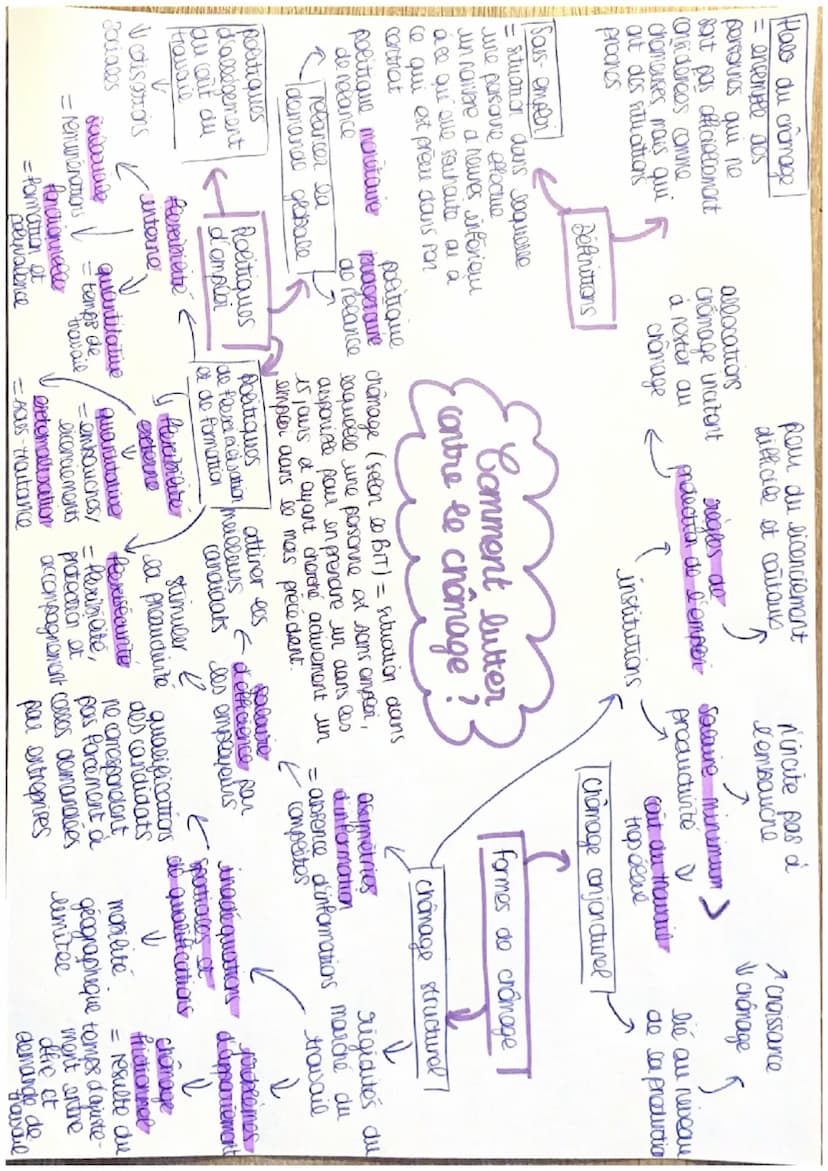 Comment lutter
contre le chômage ?
Définitions
Halo du chômage
= ensemble des
personnes qui ne
sont pas officiellement
considérées comme
chômeuses, mais qui
ont des situations
proches
Sous-emploi
= situation dans laquelle
une personne effectue
un nombre d'heures inférieur
à ce qui est prévu dans son
contrat
chômage (selon le BIT) = situation dans
laquelle une personne est sans emploi,
disponible pour en prendre un dans les
15 jours et ayant cherché activement un
emploi dans le mois précédent.
formes de chômage
chômage conjoncturel
lié au niveau
de la production
↗ croissance
↓ chômage
chômage structurel
institutions
règles de
protection de l'emploi
allocations
chômage incitent
à rester au
chômage
peur du licenciement
difficile et coûteux
salaire minimum >
productivité ⇒
coût du travail
trop élevé
n'incite pas à
l'embauche
asymétries
d'information
= absence d'informations
complètes
salaire
d'efficience par
les employeurs
attirer les
meilleurs
candidats
stimuler
la productivité
rigidités du
marché du
travail
inadéquations
spatiales et
de qualifications
qualifications
des candidats
ne correspondent
pas forcément à
celles demandées
par entreprises
mobilité
géographique
limitée
problèmes
d'appariement
chômage
frictionnel
= résulte du
temps d'ajuste-
ment entre
offre et
demande de
travail
Politiques
d'emploi
relancer la
demande globale
politique monétaire
de relance
politique budgétaire
de relance
politiques
d'allègement
du coût du
travail
↓ cotisations
sociales
politiques
de flexibilisation
et de formation
flexibilité
interne
salariale
= rémunérations
quantitative
= temps de
travail
fonctionnelle
= formation et
polyvalence
flexibilité
externe
quantitative
= embauches/
licenciements
externalisation
= sous-traitance
flexisécurité
= flexibilité,
protection et
accompagnement